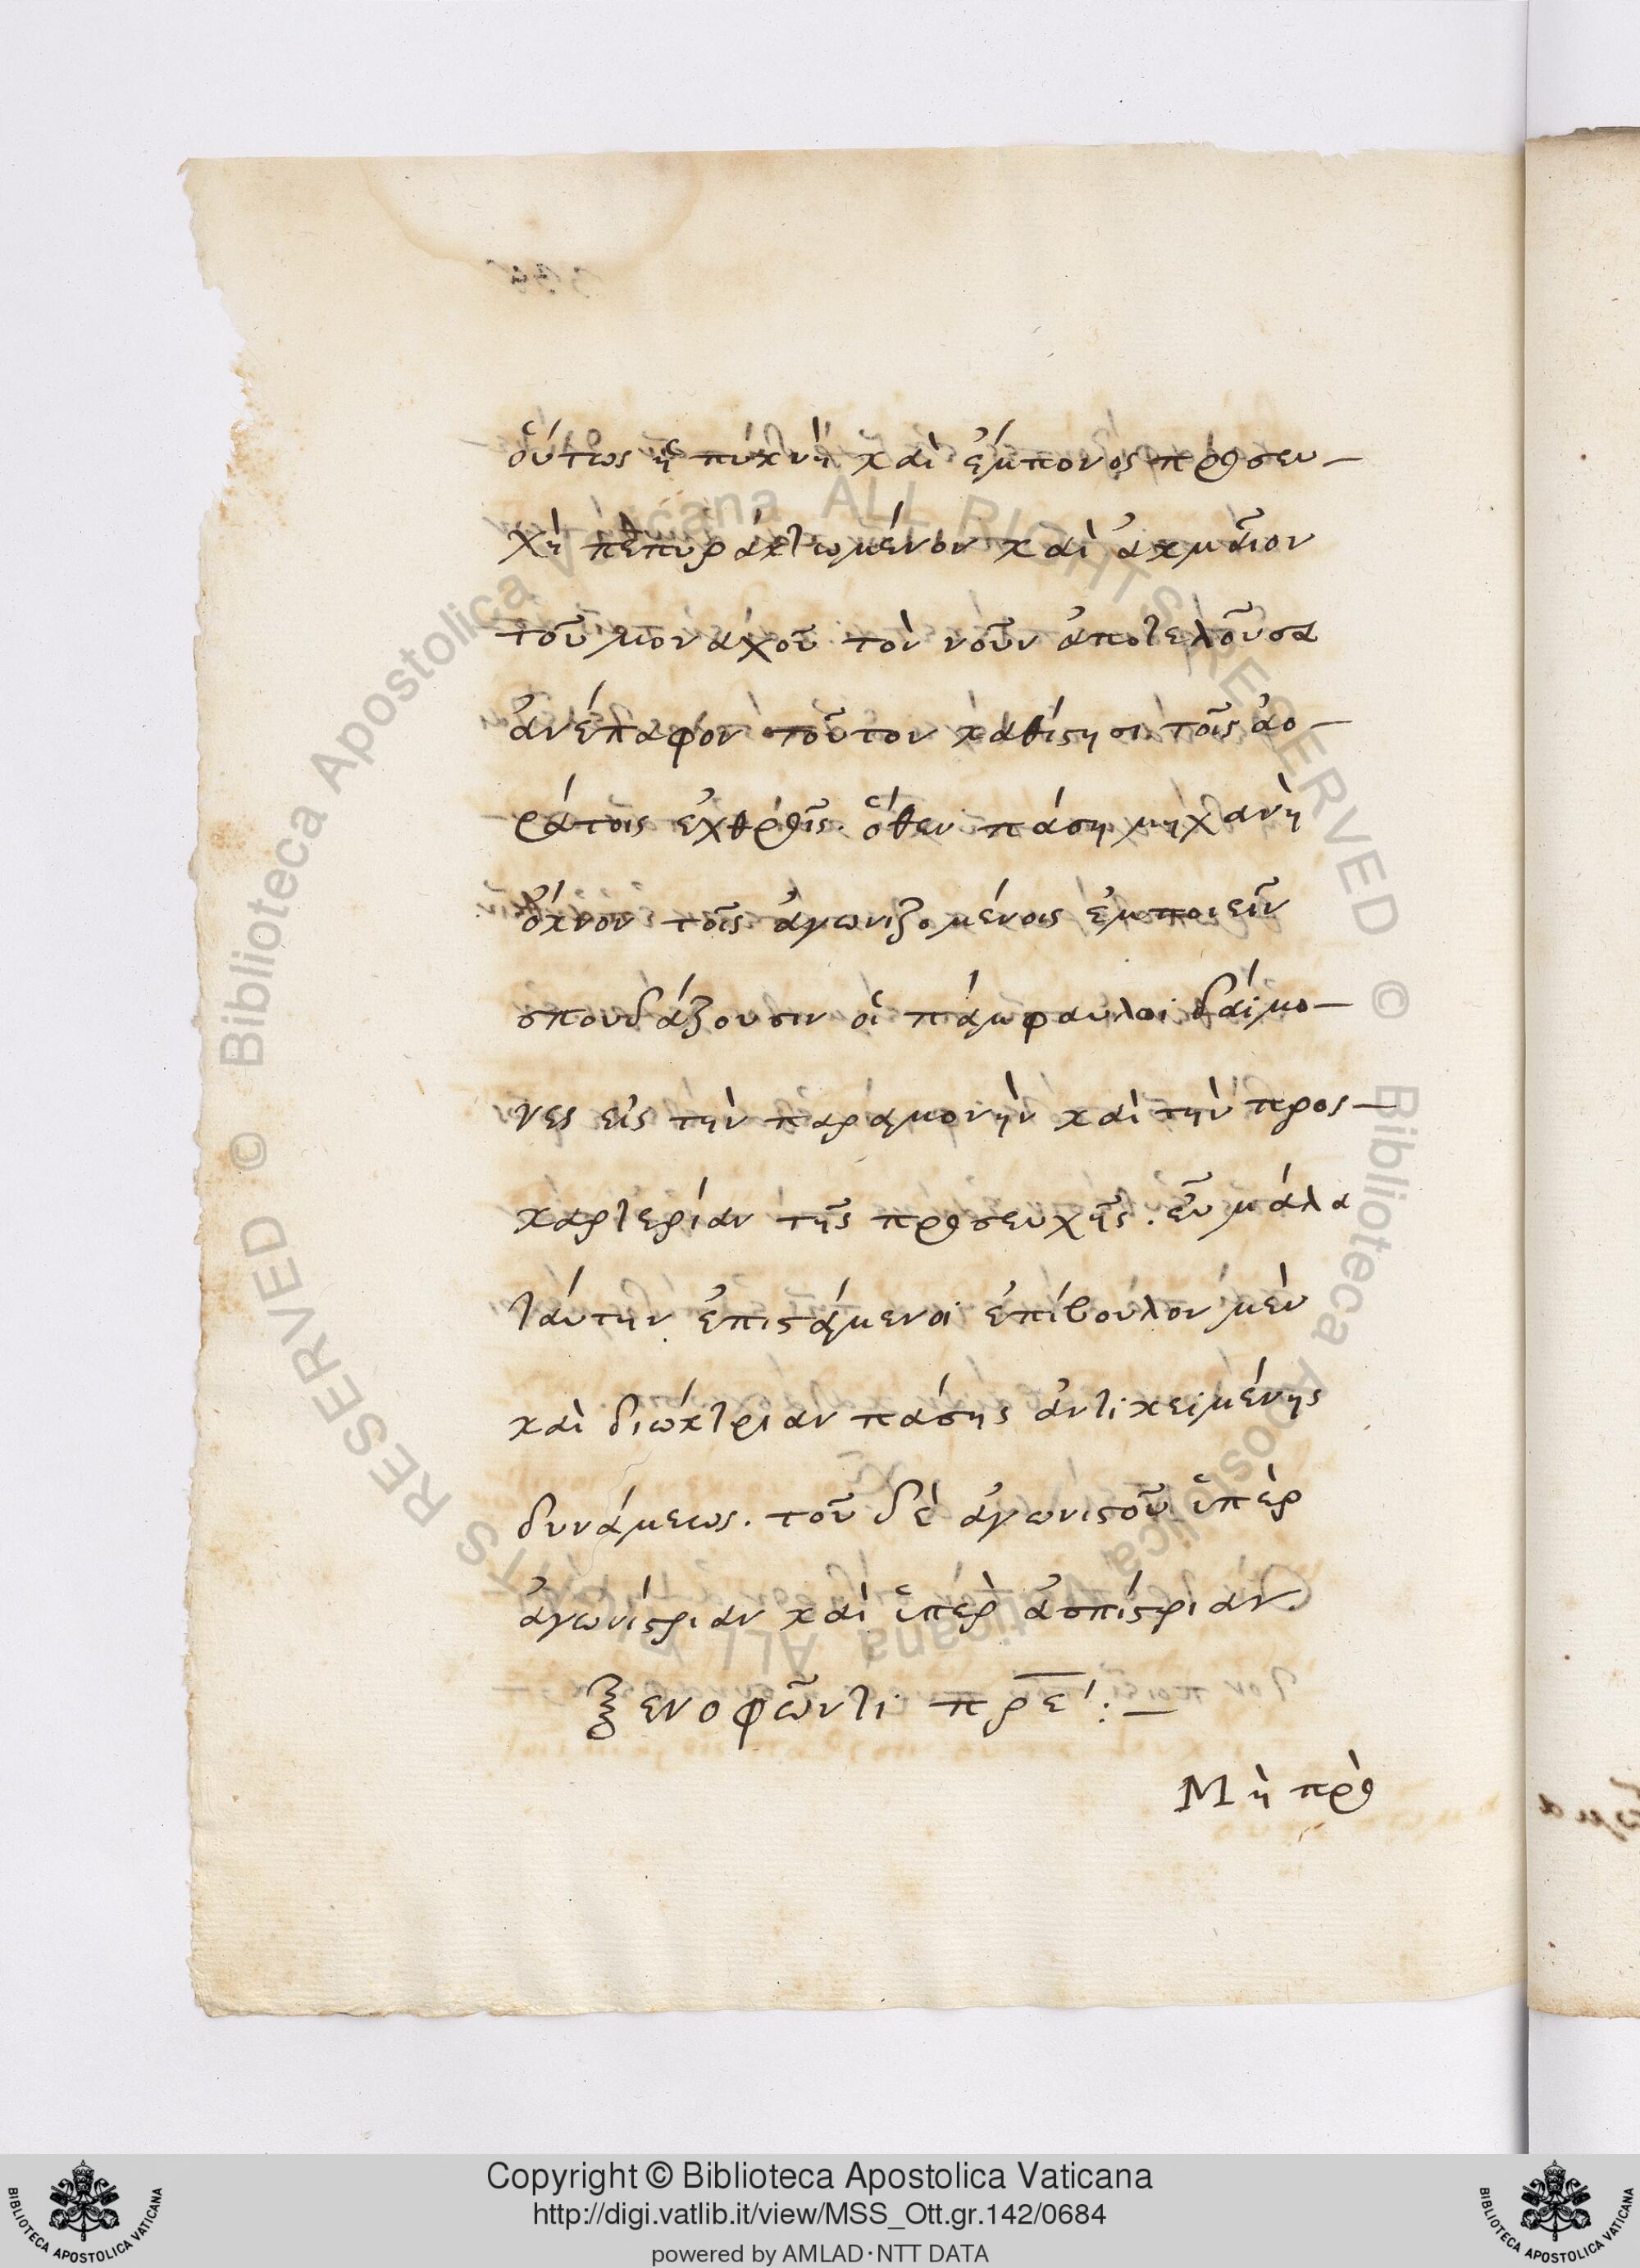 οὕτως ἡ πυκνὴ καὶ ἔμπονος προσευ-
χὴ πεπυρακτωμένον καὶ ἀκμαῖον
τοῦ μοναχοῦ τὸν νοῦν ἀποτελοῦσα
ἀνέπαφον τοῦτον καθίστησι τοῖς ἀο-
ράτοις ἐχθροῖς. ὅθεν πάσῃ μηχανῇ
ὄκνον τοῖς ἀγωνιζομένοις ἐμποιεῖν
σπουδάζουσιν οἱ πάμφαυλοι δαίμο-
νες εἰς τὴν παραμονὴν καὶ τὴν προσ-
καρτερίαν τῆς προσευχῆς. εὖ μάλα
ταύτην ἐπιστάμενοι ἐπίβουλον μὲν
καὶ διώκτριαν πάσης ἀντικειμένης
δυνάμεως. τοῦ δὲ ἀγωνιστοῦ ὑπὲρ
ἀγωνίστριαν καὶ ὑπὲρ ἀσπίστριαν.
Ξενοφῶντι πρε΄:-
Μὴ πρὸ
Copyright © Biblioteca Apostolica Vaticana
http://digi.vatlib.it/view/MSS_Ott.gr.142/0684
powered by AMLAD·NTT DATA
BIBLIOTECA APOSTOLICA VATICANA
BIBLIOTECA APOSTOLICA VATICANA
© Biblioteca Apostolica Vaticana ALL RIGHTS RESERVED
© Biblioteca Apostolica Vaticana ALL RIGHTS RESERVED